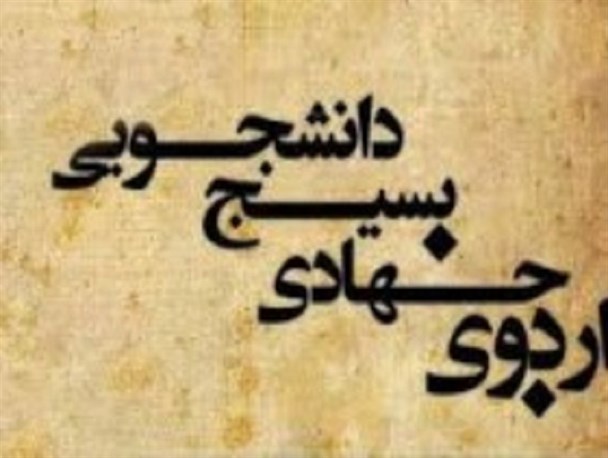 دانشجویی
بسیج
جهادی
اردوی